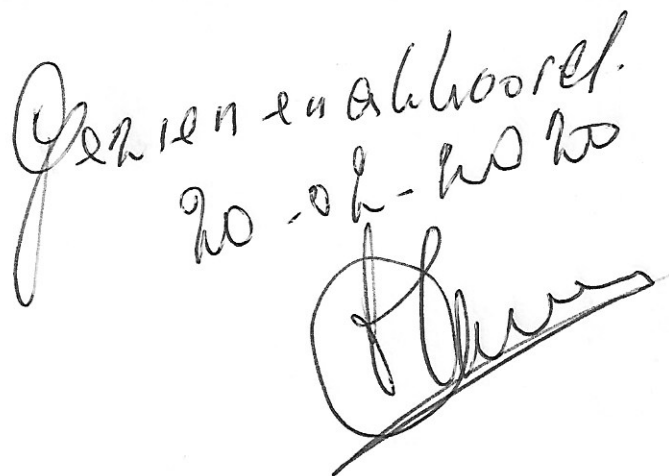 Gezien en akkoord.
20-02-2020